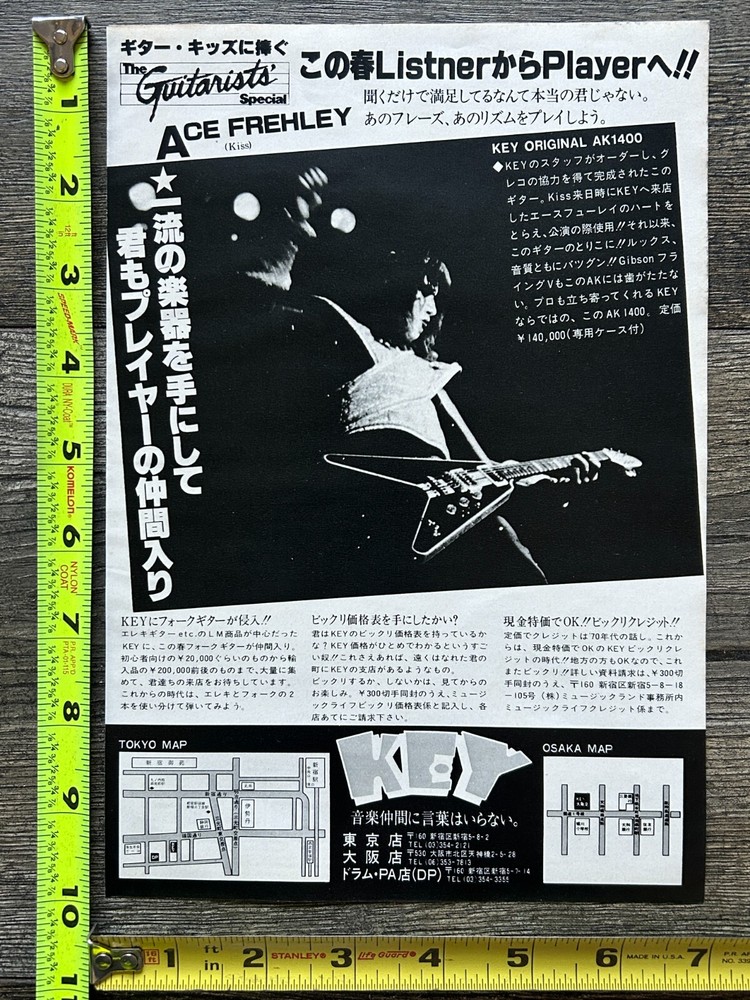 ギター・キッズに捧ぐ
The Guitarists' Special
この春ListnerからPlayerへ!!
聞くだけで満足してるなんて本当の君じゃない。
あのフレーズ、あのリズムをプレイしよう。
ACE FREHLEY
(Kiss)
KEY ORIGINAL AK1400
◆KEYのスタッフがオーダーし、グ
レコの協力を得て完成されたこの
ギター。Kiss来日時にKEYへ来店
したエースフューレイのハートを
とらえ、公演の際使用!!それ以来、
このギターのとりこに!!ルックス、
音質ともにバツグン!!Gibsonフラ
イングVもこのAKには歯がたたな
い。プロも立ち寄ってくれるKEY
ならではの、このAK1400。定価
￥140,000(専用ケース付)
★一流の楽器を手にして
君もプレイヤーの仲間入り
KEYにフォークギターが侵入!!
エレキギターetc.のLM商品が中心だった
KEYに、この春フォークギターが仲間入り。
初心者向けの￥20,000ぐらいのものから輸
入品の￥200,000前後のものまで、大量に集
めて、君達ちの来店をお待ちしています。
これからの時代は、エレキとフォークの2
本を使い分けて弾いてみよう。
ビックリ価格表を手にしたかい?
君はKEYのビックリ価格表を持っているか
な?KEY価格がひとめでわかるというすご
い奴!!これさえあれば、遠くはなれた君の
町にKEYの支店があるようなもの。
ビックリするか、しないかは、見てからの
お楽しみ。￥300切手同封のうえ、ミュージ
ックライフビックリ価格表係と記入し、各
店あてにご請求下さい。
現金特価でOK!!ビックリクレジット!!
定価でクレジットは'70年代の話し。これか
らは、現金特価でOKのKEYビックリクレ
ジットの時代!!地方の方もOKなので、これ
またビックリ!!詳しい資料請求は、￥300切
手同封のうえ、〒160 新宿区新宿5-8-18
-105号(株)ミュージックランド事務所内
ミュージックライフクレジット係まで。
TOKYO MAP
新宿御苑
新宿駅
新宿通り
伊勢丹
靖国通り
KEY
音楽仲間に言葉はいらない。
東京店 〒160 新宿区新宿5-8-2
TEL(03)354-2121
大阪店 〒530 大阪市北区天神橋2-5-28
TEL(06)353-7813
ドラム・PA店(DP) 〒160 新宿区新宿5-7-14
TEL(03)354-3355
OSAKA MAP
1
2
3
SPEED-MARK
4
5
KOMELON
6
NYLON COAT
7
8
9
10
ft
in
1
2
STANLEY
3
Life Guard
4
5
6
MADE IN U.S.A.
7